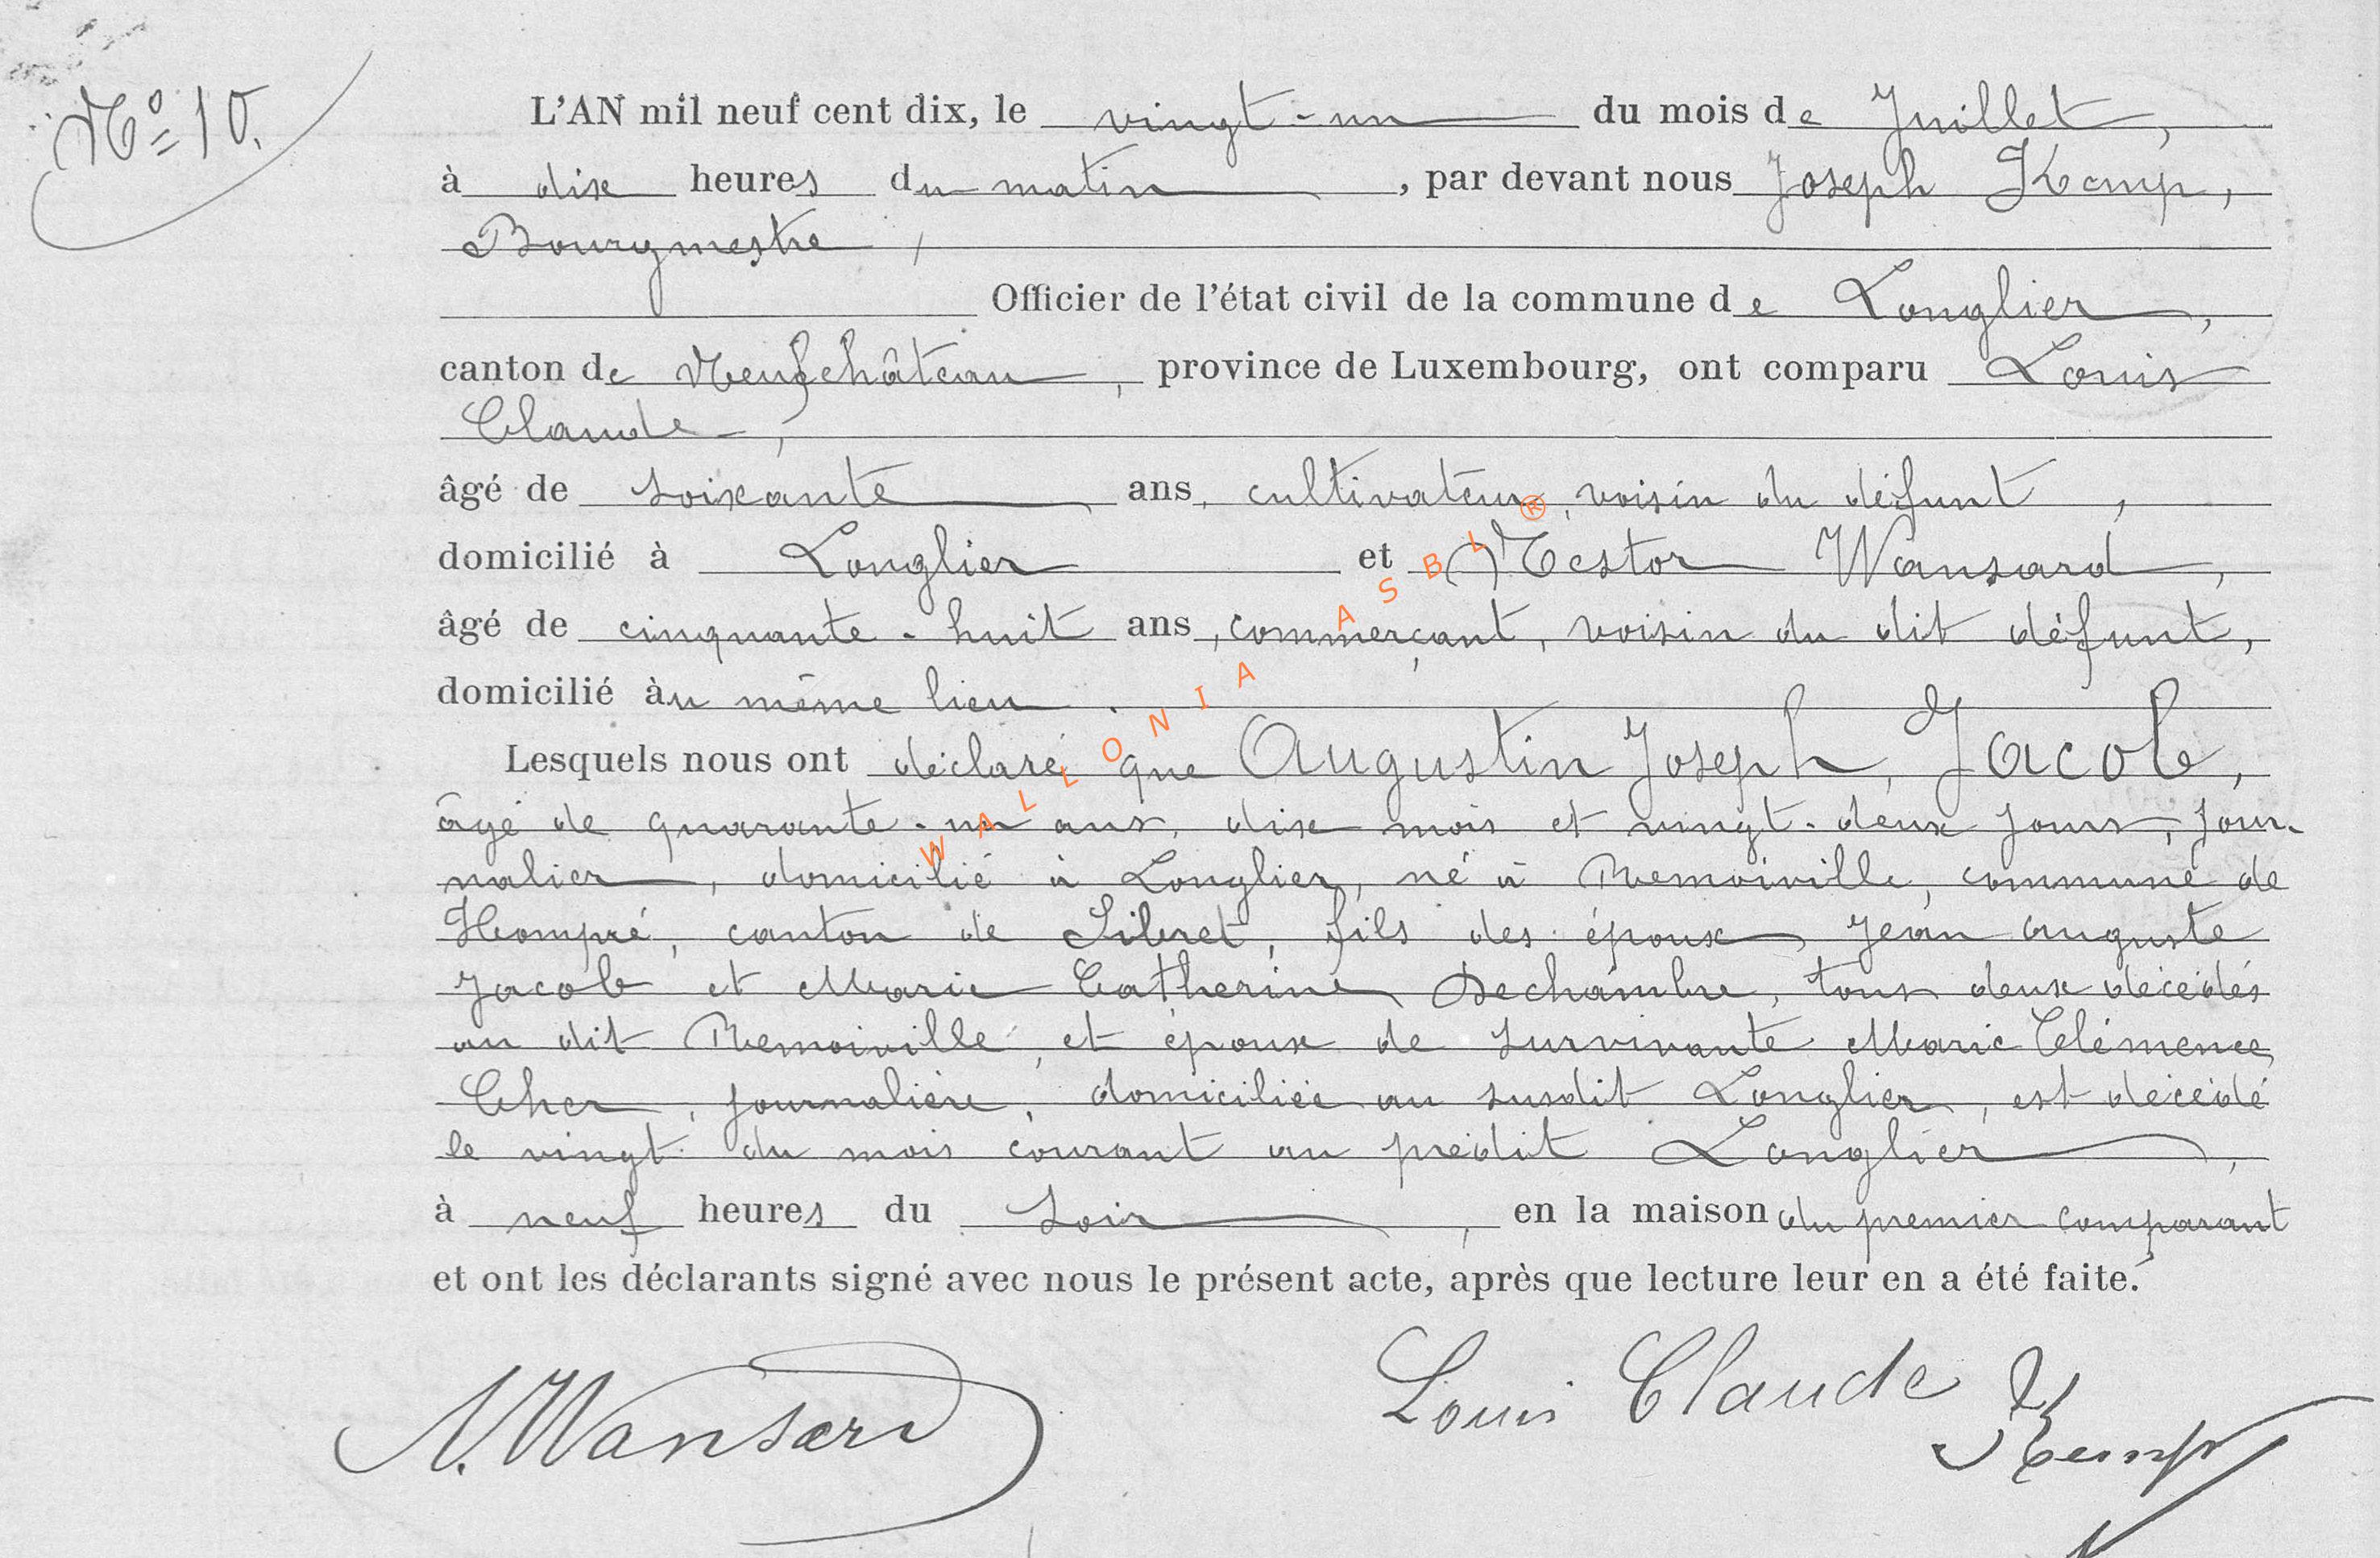 N° 10.
L'AN mil neuf cent dix, le vingt-un du mois de Juillet,
à dix heures du matin, par devant nous Joseph Kemp,
Bourgmestre,
Officier de l'état civil de la commune de Longlier,
canton de Neufchâteau, province de Luxembourg, ont comparu Louis
Claude,
âgé de soixante ans, cultivateur, voisin du défunt,
domicilié à Longlier et Nestor Wansard,
âgé de cinquante-huit ans, commerçant, voisin du dit défunt,
domicilié àu même lieu.
Lesquels nous ont déclaré que Augustin Joseph, Jacob,
âgé de quarante-un ans, dix mois et vingt-deux jours, jour-
nalier, domicilié à Longlier, né à Remoiville, commune de
Hompré, canton de Sibret, fils des époux Jean Auguste
Jacob et Marie Catherine Dechambre, tous deux décédés
au dit Remoiville, et époux de survivante Marie Clémence
Cher, journalière, domiciliée au susdit Longlier, est décédé
le vingt du mois courant au prédit Longlier,
à neuf heures du soir, en la maison du premier comparant
et ont les déclarants signé avec nous le présent acte, après que lecture leur en a été faite.
N. Wansard Louis Claude J Kemp
WALLONIA ASBL ®